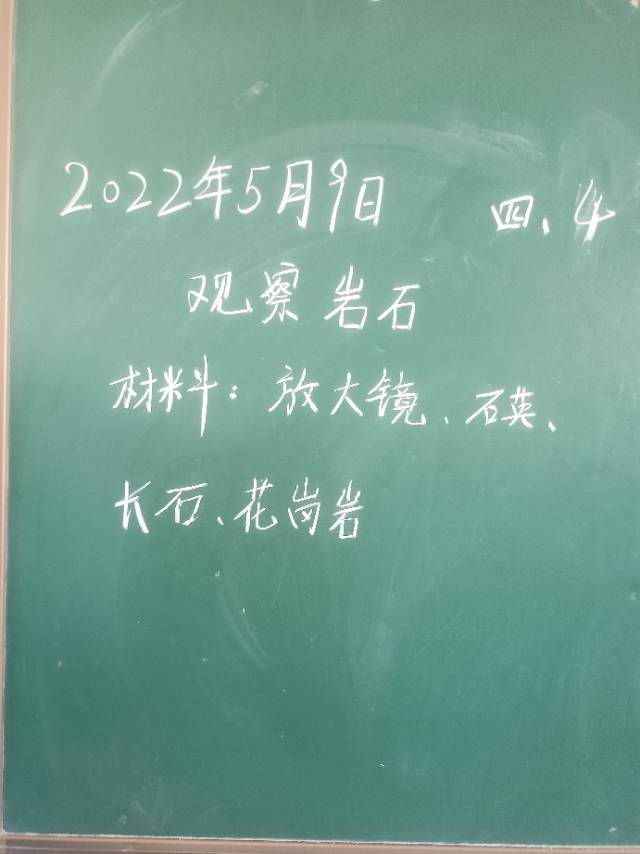 2022年5月9日 四、4
观察岩石
材料：放大镜、石英、
长石、花岗岩